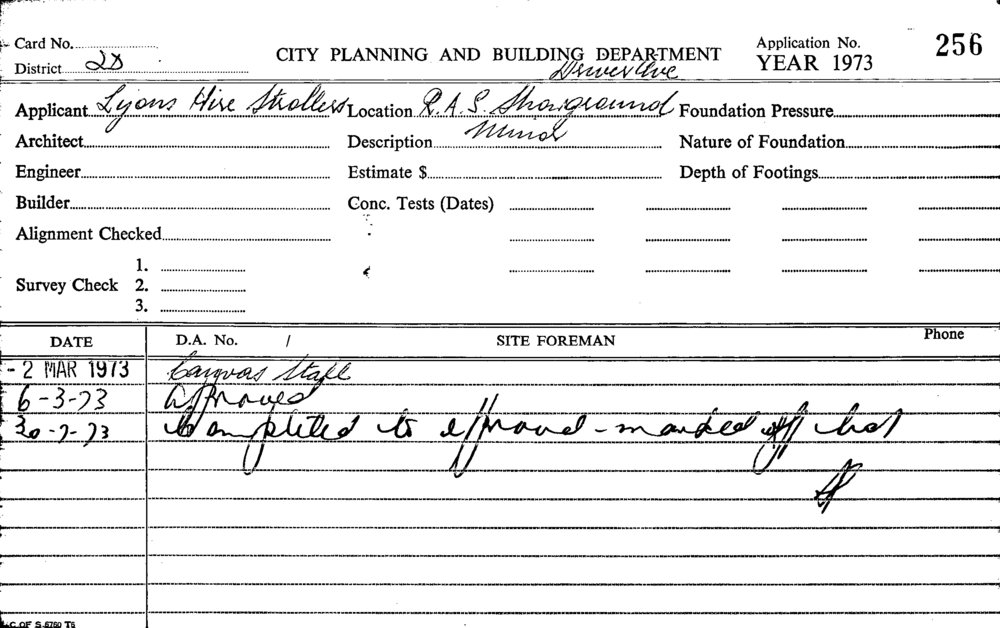 Card No.
CITY PLANNING AND BUILDING DEPARTMENT
Application No. 256
District 2D
Driver Ave
YEAR 1973
Applicant Lyons Hire Strollers Location R.A.S. Showground Foundation Pressure
Architect Description Minor Nature of Foundation
Engineer Estimate $ Depth of Footings
Builder Conc. Tests (Dates)
Alignment Checked
1.
Survey Check 2.
3.
DATE D.A. No. / SITE FOREMAN Phone
- 2 MAR 1973 Canvas Stall
6-3-73 Approved
30-7-73 Completed to approval - marked off list
L.C. OF S. 5750 T5